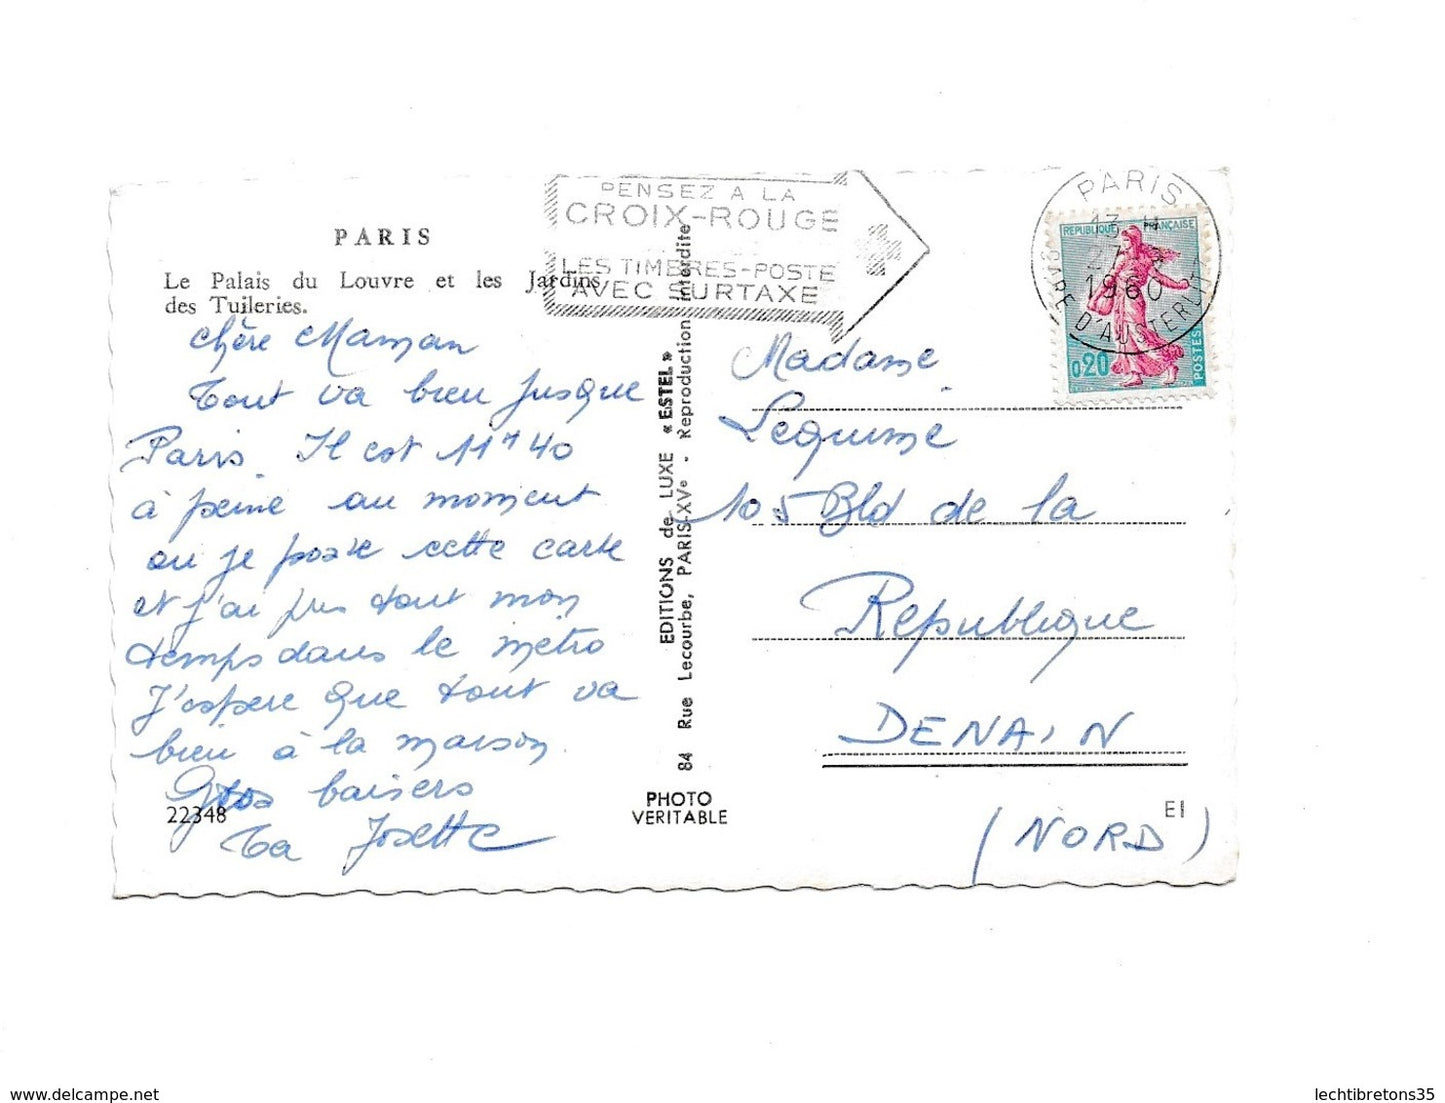 PARIS
Le Palais du Louvre et les Jardins
des Tuileries.
Chère Maman
Tout va bien jusque
Paris. Il est 11H40
à peine au moment
ou je poste cette carte
et j'ai pris tout mon
temps dans le métro
J'espere que tout va
bien à la maison.
Gros baisers
22348
Ta Josette
PENSEZ A LA
CROIX-ROUGE
LES TIMBRES-POSTE
AVEC SURTAXE
EDITIONS de LUXE « ESTEL »
84 Rue Lecourbe, PARIS-XVe - Reproduction interdite
PHOTO
VERITABLE
PARIS
13 H
27
1960
GARE D'AUSTERLITZ
REPUBLIQUE FRANÇAISE
0,20
POSTES
Madame
Lequime
105 Bld de la
Republique
DENAIN
(NORD)
EI
delcampe.net
lechtibretons35